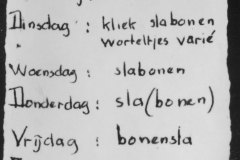 Dinsdag : kliek slabonen
worteltjes varié
Woensdag : slabonen
Donderdag : sla(bonen)
Vrijdag : bonensla